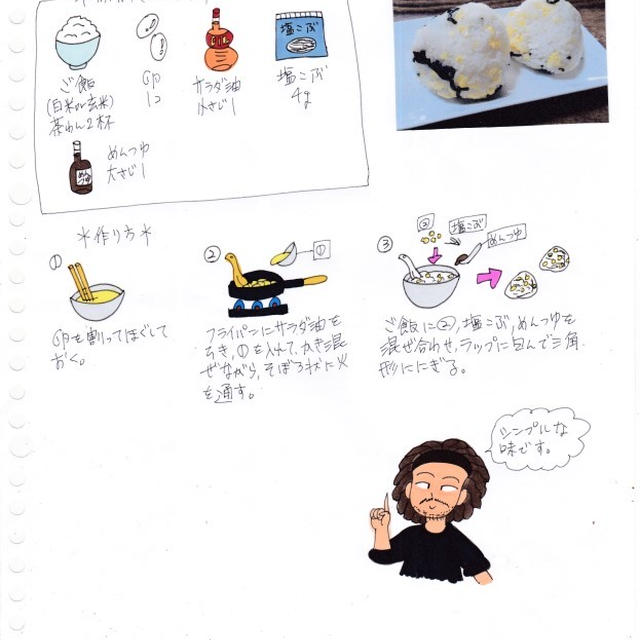 塩こぶ
ご飯
(白米or玄米)
茶わん2杯
卵
1コ
サラダ油
小さじ1
塩こぶ
4g
めんつゆ
めんつゆ
大さじ1
*作り方*
①
卵を割ってほぐして
おく。
②
①
フライパンにサラダ油を
ひき、①を入れて、かき混
ぜながら、そぼろ状に火
を通す。
③
②
塩こぶ
めんつゆ
ご飯に②、塩こぶ、めんつゆを
混ぜ合わせ、ラップに包んで三角
形ににぎる。
シンプルな
味です。